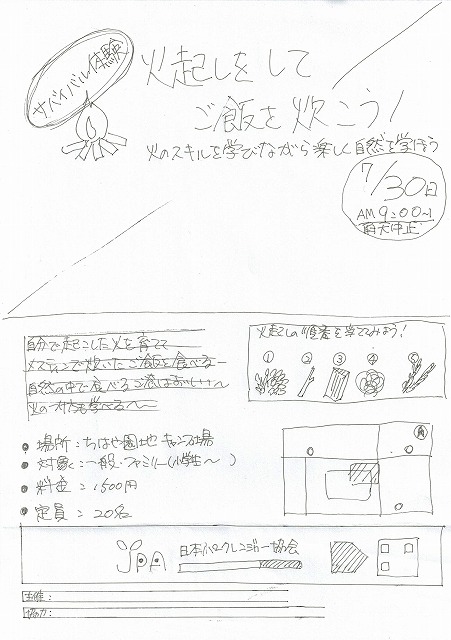 サバイバル体験
火起しをして
ご飯を炊こう!
火のスキルを学びながら楽しく自然を学ぼう
7/30日
AM9:00~
雨天中止
自分で起こした火を育てて
メスティンで炊いたご飯を食べる
自然の中で食べるご飯はおいしい~
火の
も学べる~
火起しの
を学んでみよう!
① ② ③ ④ ⑤
● 場所:ちはや園地キャンプ場
● 対象:一般・ファミリー(小学生~)
● 料金:1500円
● 定員:20名
JPA
日本パークレンジャー協会
主催:
協力: